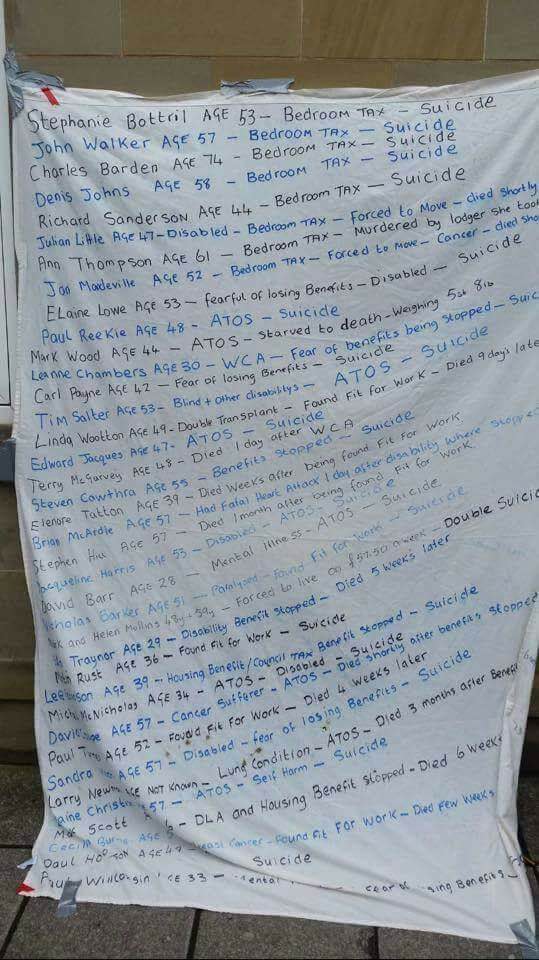 Stephanie Bottril AGE 53 – BEDROOM TAX – SUICIDE
JOHN WALKER AGE 57 – BEDROOM TAX – SUICIDE
CHARLES BARDEN AGE 74 – BEDROOM TAX – SUICIDE
DENIS JOHNS AGE 58 – BEDROOM TAX – SUICIDE
RICHARD SANDERSON AGE 44 – BEDROOM TAX – SUICIDE
Julian Little AGE 47 – Disabled – BEDROOM TAX – Forced to Move – died shortly
Ann Thompson AGE 61 – BEDROOM TAX – Murdered by lodger she took
Jan Mandeville AGE 52 – BEDROOM TAX – Forced to Move – Cancer – died
ELaine Lowe AGE 53 – fearful of losing Benefits – Disabled – Suicide
Paul Reekie AGE 48 – ATOS – Suicide
Mark Wood AGE 44 – ATOS – Starved to death – Weighing 5st 8lb
Leanne Chambers AGE 30 – WCA – Fear of benefits being stopped –
Carl Payne AGE 42 – Fear of losing Benefits – Suicide
Tim Salter AGE 53 – Blind + other disabilitys – ATOS – Suicide
Linda Wootton AGE 49 – Double Transplant – Found Fit for Work – Died 9 days
Edward Jacques AGE 47 – ATOS – Suicide
Terry McGarvey AGE 48 – Died 1 day after WCA
Steven Cawthra AGE 55 – Benefits Stopped – Suicide
Elenore Tatton AGE 39 – Died Weeks after being found Fit For Work
Brian McArdle AGE 57 – Had Fatal Heart Attack 1 day after disability where stopped
Stephen Hill AGE 57 – Died 1 month after being found Fit for Work.
Jacqueline Harris AGE 53 – Disabled – ATOS – Suicide
David Barr AGE 28 – Mental Illness – ATOS – Suicide.
Nicholas Barker AGE 51 – Paralysed – Found Fit for Work – Suicide
and Helen Mullins 48y + 59y – Forced to live on £57.50 a week – Double
Traynor AGE 29 – Disability Benefit Stopped – Died 5 weeks later
Rust AGE 36 – Found Fit for Work – Suicide
Lee AGE 39 – Housing Benefit/Council TAX Benefit Stopped – Suicide
McNicholas AGE 34 – ATOS – Disabled – Suicide
David AGE 57 – Cancer Sufferer – ATOS – Died shortly after benefits stopped
Paul AGE 52 – Found Fit For Work – Died 4 weeks later
Sandra AGE 57 – Disabled – fear of losing Benefits – Suicide
Larry AGE Not Known – Lung Condition – ATOS – Died 3 months after
57 – ATOS – Self Harm – Suicide
Scott – DLA and Housing Benefit Stopped – Died 6
Cecilia – Cancer – Found Fit For Work – Died few weeks
Paul
Suicide
33 –